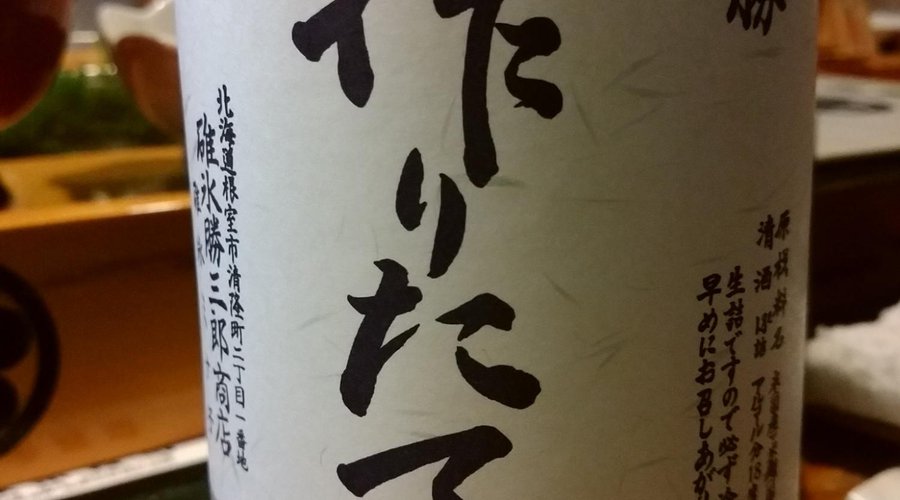 勝
原材料名
清酒 ぽ詰
アルコール分18度
生詰ですので必ず
早めにお召しあが
作りたて
北海道根室市清隆町二丁目一番地
碓氷勝三郎商店